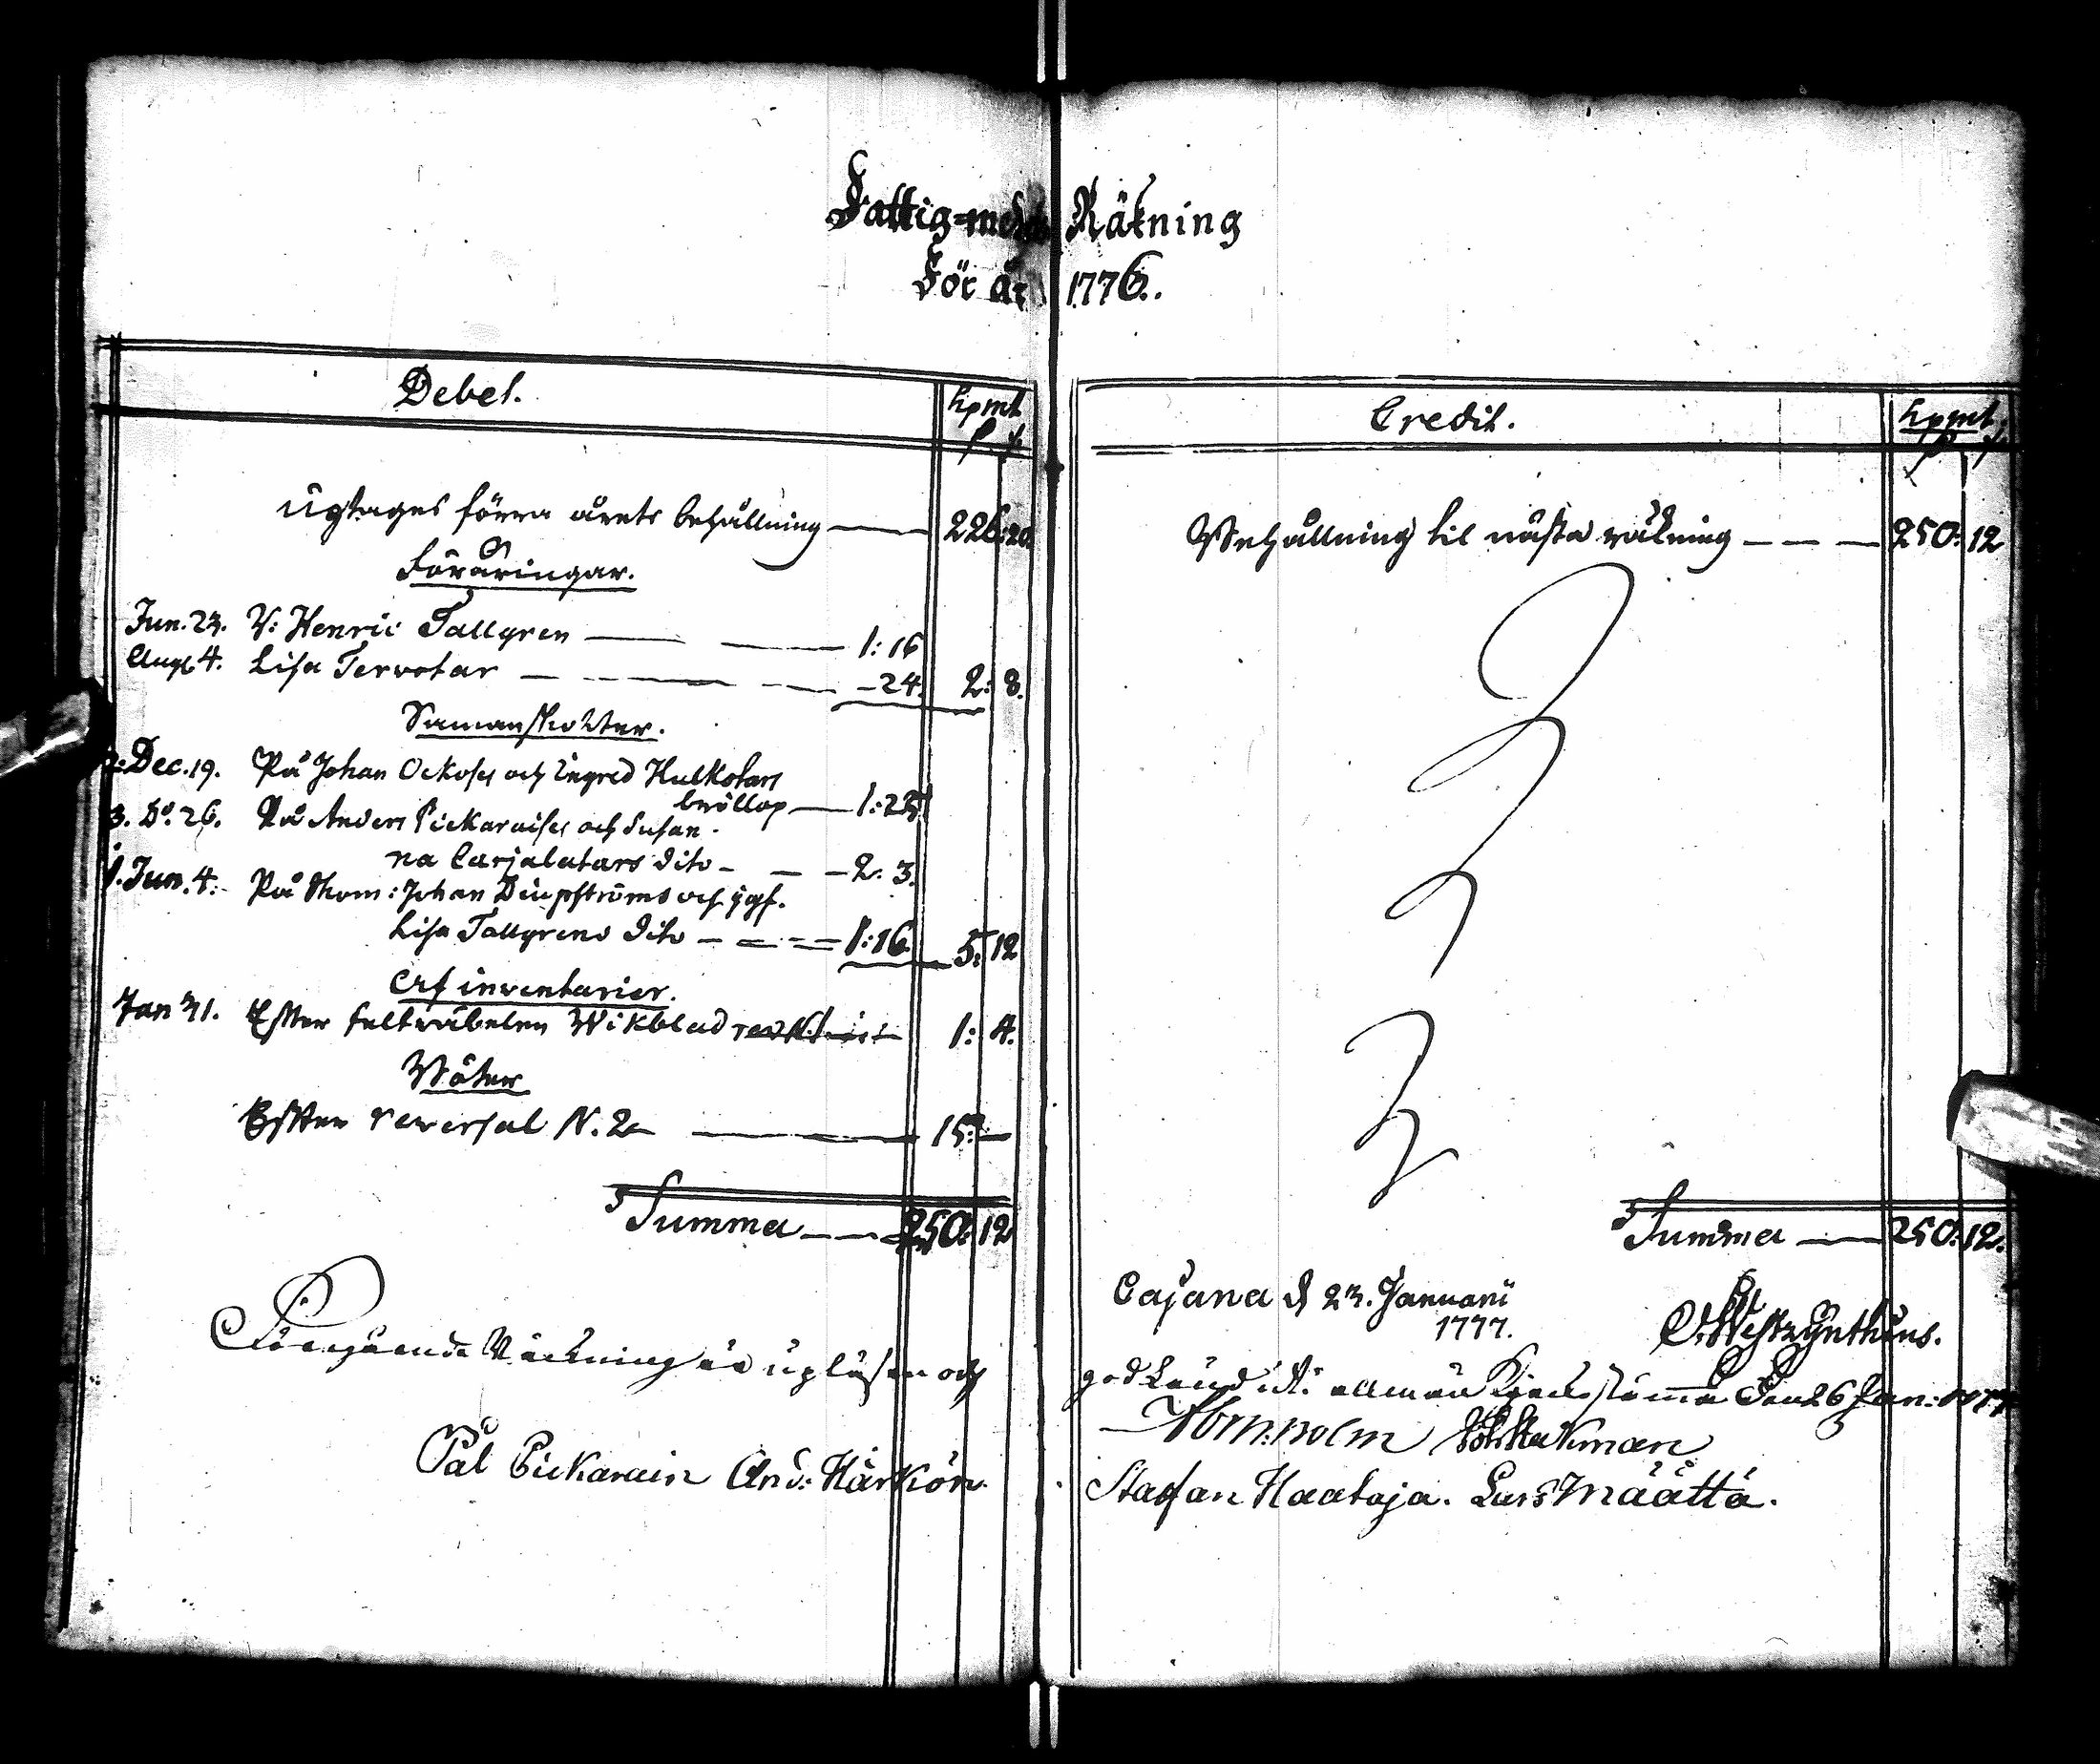 Fattig-medels Räkning
För år 1776.
Debet.
kpmt
Uptages förra årets behållning — 226:20.
Föräringar.
Jun. 23. V: Henric Tallgren — 1:16
Aug. 4. Lisa Tervotar — -24. 2: 8.
Sammanskotter.
Dec. 19. På Johan Ockoses och Ingred Hulkotars
bröllop — 1:25
3. Do. 26. På Anders Pickaraises och Susan-
na Carjalatars dito — 2: 3.
Jun. 4. På Thom: Johan Diupströms och jgf.
Lisa Tallgrens dito — 1:16 5: 12
Arf inventarier.
Jan 31. Efter feltwäbelen Wikblad 1: 4.
Böter
Efter reversal N. 2 — 15: —
Summa — 250: 12
Föregående Räckning är upläsen och
Pål Pickarain And: Härkön.
Credit.
kpmt
Behållning til nästa räkning — 250: 12
Summa — 250: 12.
Cajana d 23. Januarii
1777.
godkänd i allmän Kyrckostämma den 26 Jan: 1777
Staffan Haataja. Lars Määttä.